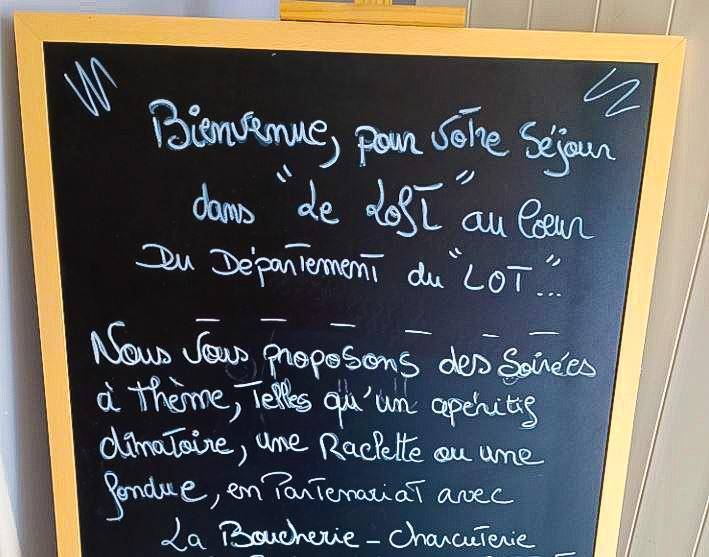 Bienvenue, pour votre séjour
dans "Le Loft" au Coeur
Du Département du "LOT"...
Nous vous proposons des Soirées
à thème, Telles qu'un apéritif
dînatoire, une Raclette ou une
fondue, en Partenariat avec
La Boucherie - Charcuterie